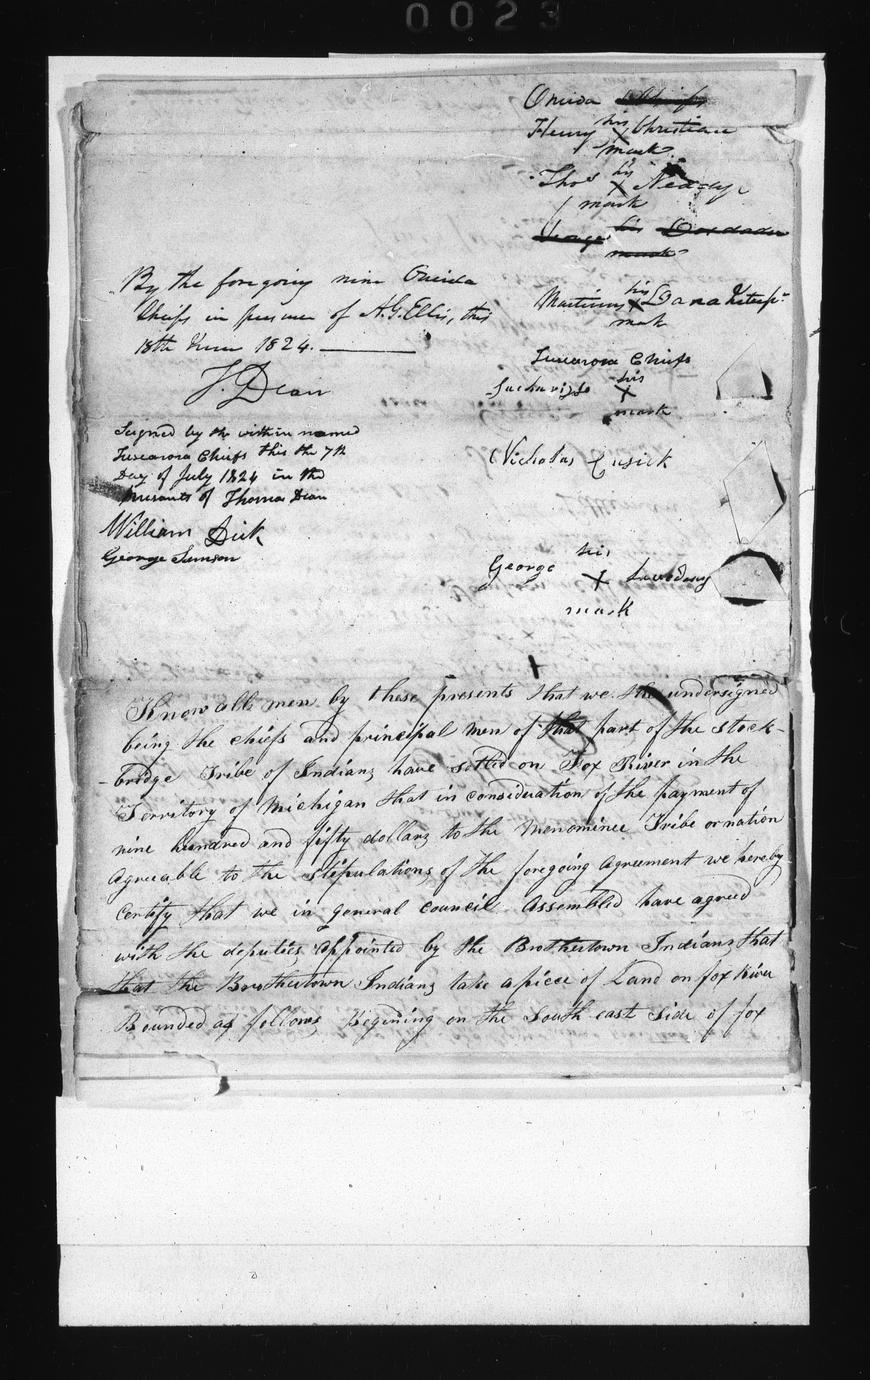 0023
Oneida Chiefs
Henry his X Christian
mark
Thos his X Neddy
mark
George his
mark
By the foregoing nine Oneida
Chiefs in presence of A.G. Ellis, this
18th June 1824.
Martinus his X
mark
T. Dean
Tuscarora Chiefs
his
X
mark
Signed by the within named
Tuscarora Chiefs this the 7th
Day of July 1824 in the
presants of Thomas Dean
Nicholas Cusick
William Dick
George Samson
George his X
mark
Know all men by these presents that we the undersigned
being the chiefs and principal men of that part of the stock-
-bridge Tribe of Indians have setled on Fox River in the
Territory of Michigan that in consideration of the payment of
nine hundred and fifty dollars to the Menominee Tribe or nation
agreeable to the stipulations of the foregoing agreement we hereby
certify that we in general council assembled have agreed
with the deputies appointed by the Brothertown Indians that
that the Brothertown Indians take a piece of Land on fox River
Bounded as follows Begining on the South east side of fox